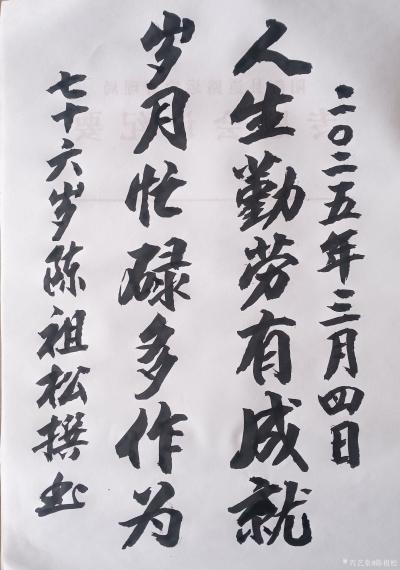 二〇二五年三月四日
人生勤劳有成就
岁月忙碌多作为
七十六岁陈祖松撰书